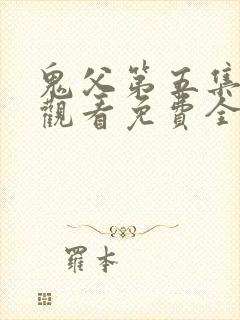 鬼父第五集
觀看免費全
羅本